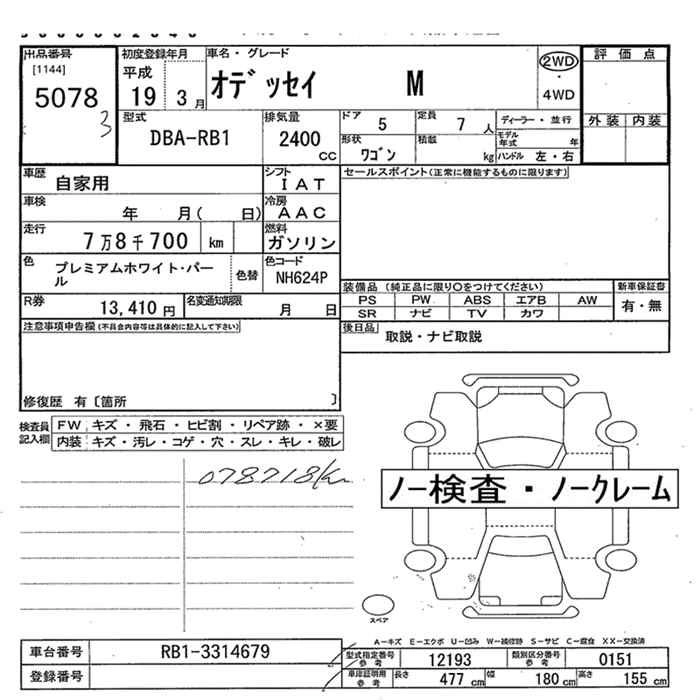 出品番号
[1144]
5078
3
初度登録年月
平成
19 3月
車名・グレード
オデッセイ M
2WD
・
4WD
評価点
外装 内装
型式
DBA-RB1
排気量
2400
CC
ドア
5
定員
7人
ディーラー・並行
モデル年式 年
形状
ワゴン
積載
kg
ハンドル 左・右
車歴
自家用
シフト
IAT
セールスポイント(正常に機能するものに限ります)
車検
年 月( 日)
冷房
AAC
走行
7万8千700 km
燃料
ガソリン
色
プレミアムホワイト・パール
色替
色コード
NH624P
装備品 (純正品に限り○をつけてください)
新車保証書
PS PW ABS エアB AW
SR ナビ TV カワ
有・無
R券
13,410 円
名変通知期限
月 日
後日品
取説・ナビ取説
注意事項申告欄(不具合内容等は具体的に記入して下さい)
修復歴 有〔箇所 〕
検査員記入欄
FW キズ・飛石・ヒビ割・リペア跡・×要
内装 キズ・汚レ・コゲ・穴・スレ・キレ・破レ
078718km
ノー検査・ノークレーム
スペア
A-キズ E-エクボ U-凹み W-補修跡 S-サビ C-腐食 XX-交換済
車台番号
RB1-3314679
登録番号
型式指定番号参考
12193
類別区分番号参考
0151
車庫証明用参考
長さ 477 cm
幅 180 cm
高さ 155 cm